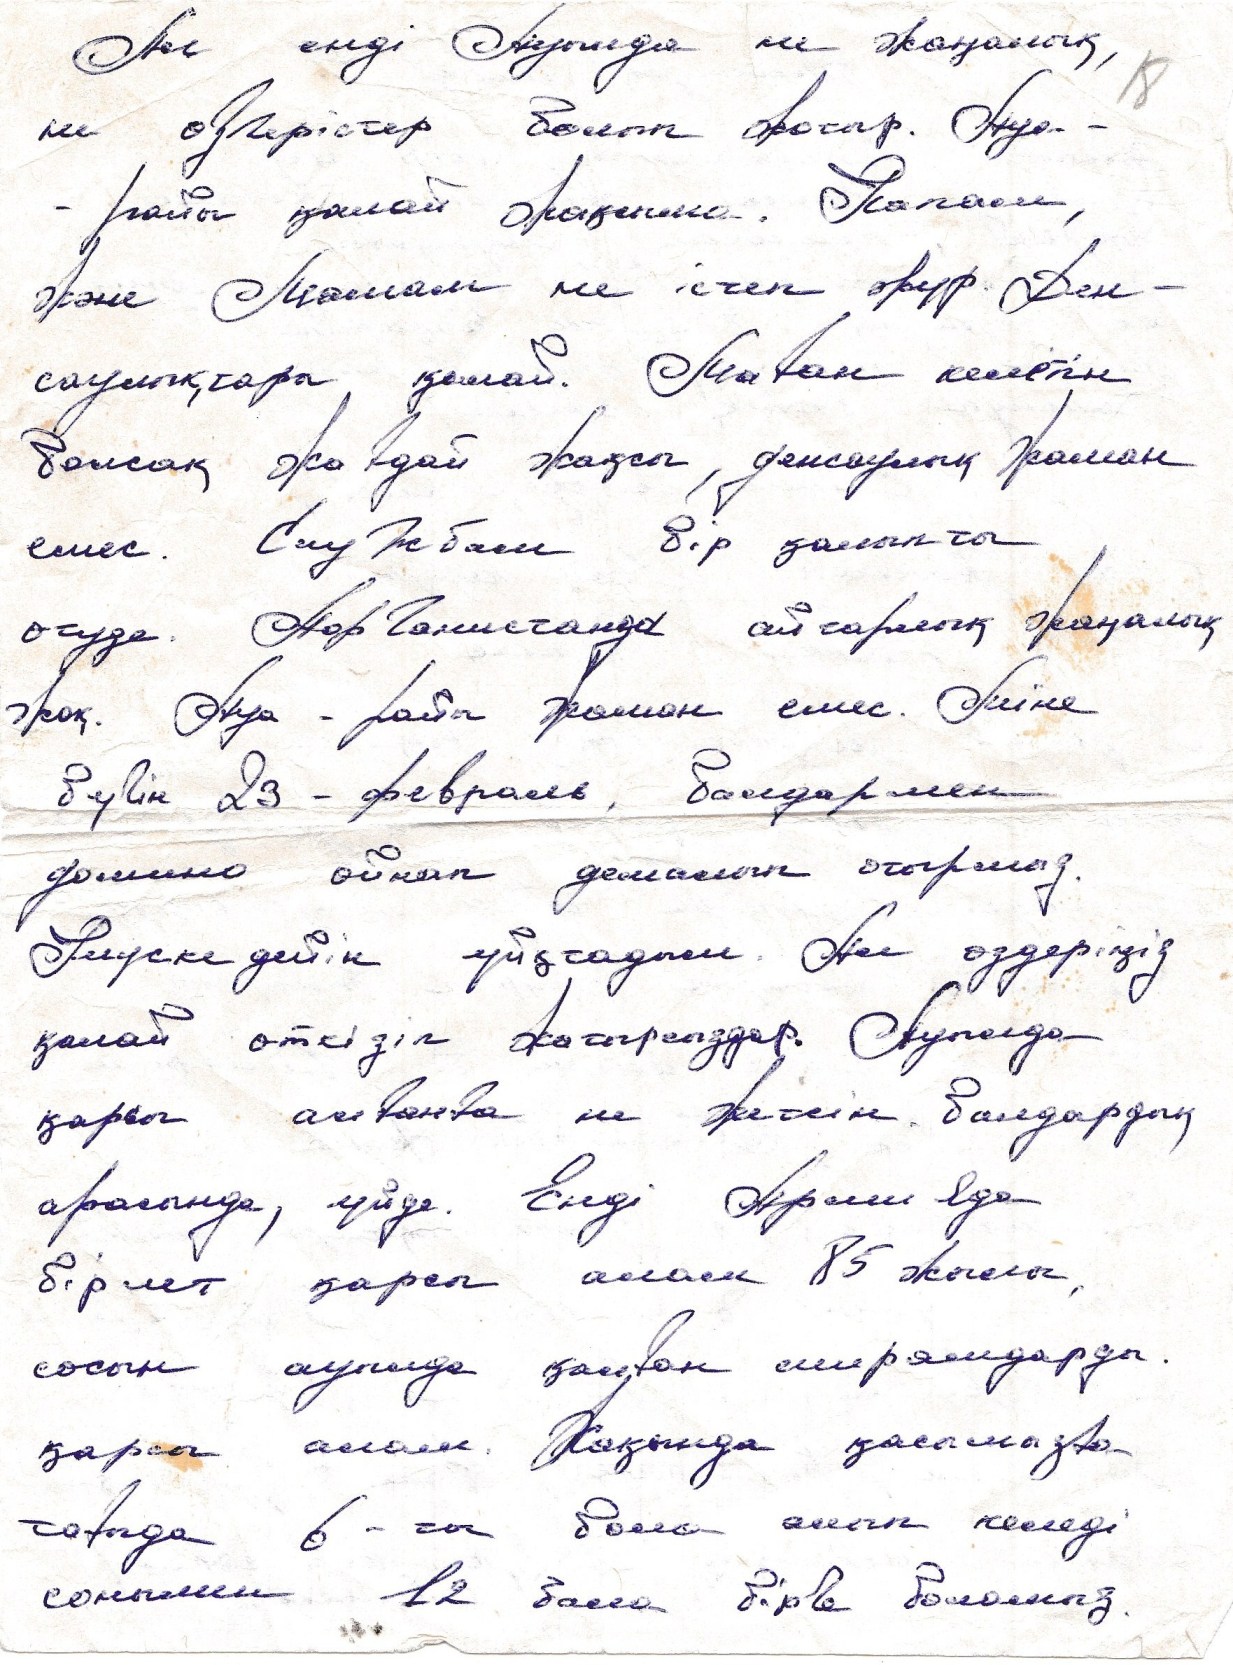 Ал енді Ауылда не жаңалық,
18
не өзгерістер болып жатыр. Ауа-
- райы қалай жақсыма. Папам,
және Мамам не істеп жүр. Ден-
саулықтары қалай. Маған келетін
болсақ жағдай жақсы, денсаулық жаман
емес. Службам бір қалыпты
өтуде. Афганистанда айтарлық жаңалық
жоқ. Ауа - райы жаман емес. Міне
бүгін 23 - февраль, балдармен
домино ойнап демалып отырмыз.
Түске дейін ұйықтадым. Ал өздеріңіз
қалай өткізіп жатырсыздар. Ауылда
қарсы алғанға не жетсін. балдардың
арасында, үйде. Енді Армияда
бір рет қарсы алам 85 жылы,
сосын ауылда қалған мирамдарды.
қарсы алам. Жақында қасымызға
тағыда 6 - ты бала алып келеді
сонымен 12 бала бірге боламыз.